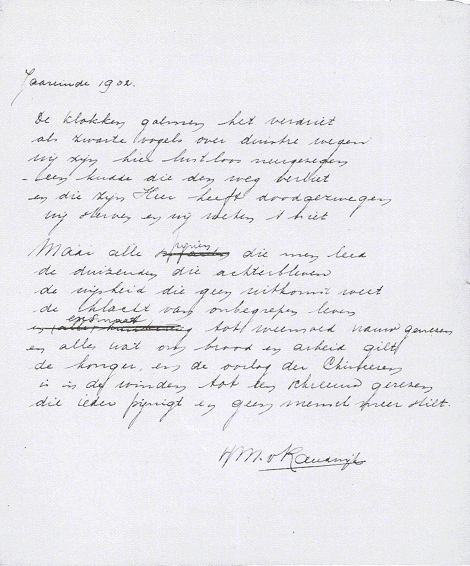 Jaareinde 1902.
De klokken galmen het verdriet
als zwarte vogels over duistre wegen
wij zijn hier lusteloos neergezegen
- een kudde die den weg verliet
en die zijn Heer heeft doodgezwegen
wij sterven en wij weten 't niet
Maar alle pijnen die men leed
de duizenden die achterbleven
de wijsheid die geen uitkomst weet
de klacht van onbegrepen leven
tot weemoed
en alles wat om brood en arbeid gilt
de honger, en de oorlog der
is in de winden tot een schreeuw gerezen
die ieder pijnigt en geen mensch meer stilt.
H M. v Randwijk